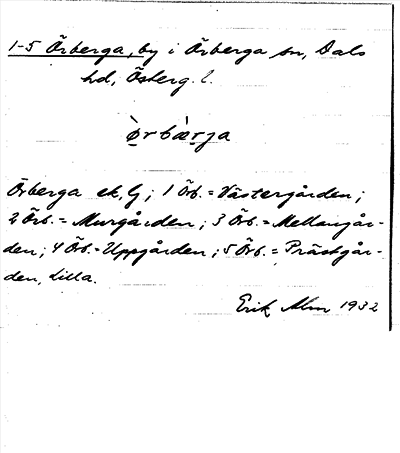 1-5 Örberga, by i Örberga sn, Dals
hd, Österg. l.
ò̤rbæ̀r̤ja
Örberga ek, G; 1 Örb. = Västergården;
2 Örb. = Murgården; 3 Örb. = Mellangår-
den; 4 Örb. = Uppgården; 5 Örb. = Prästgår-
den, Lilla.
Erik Alm 1932